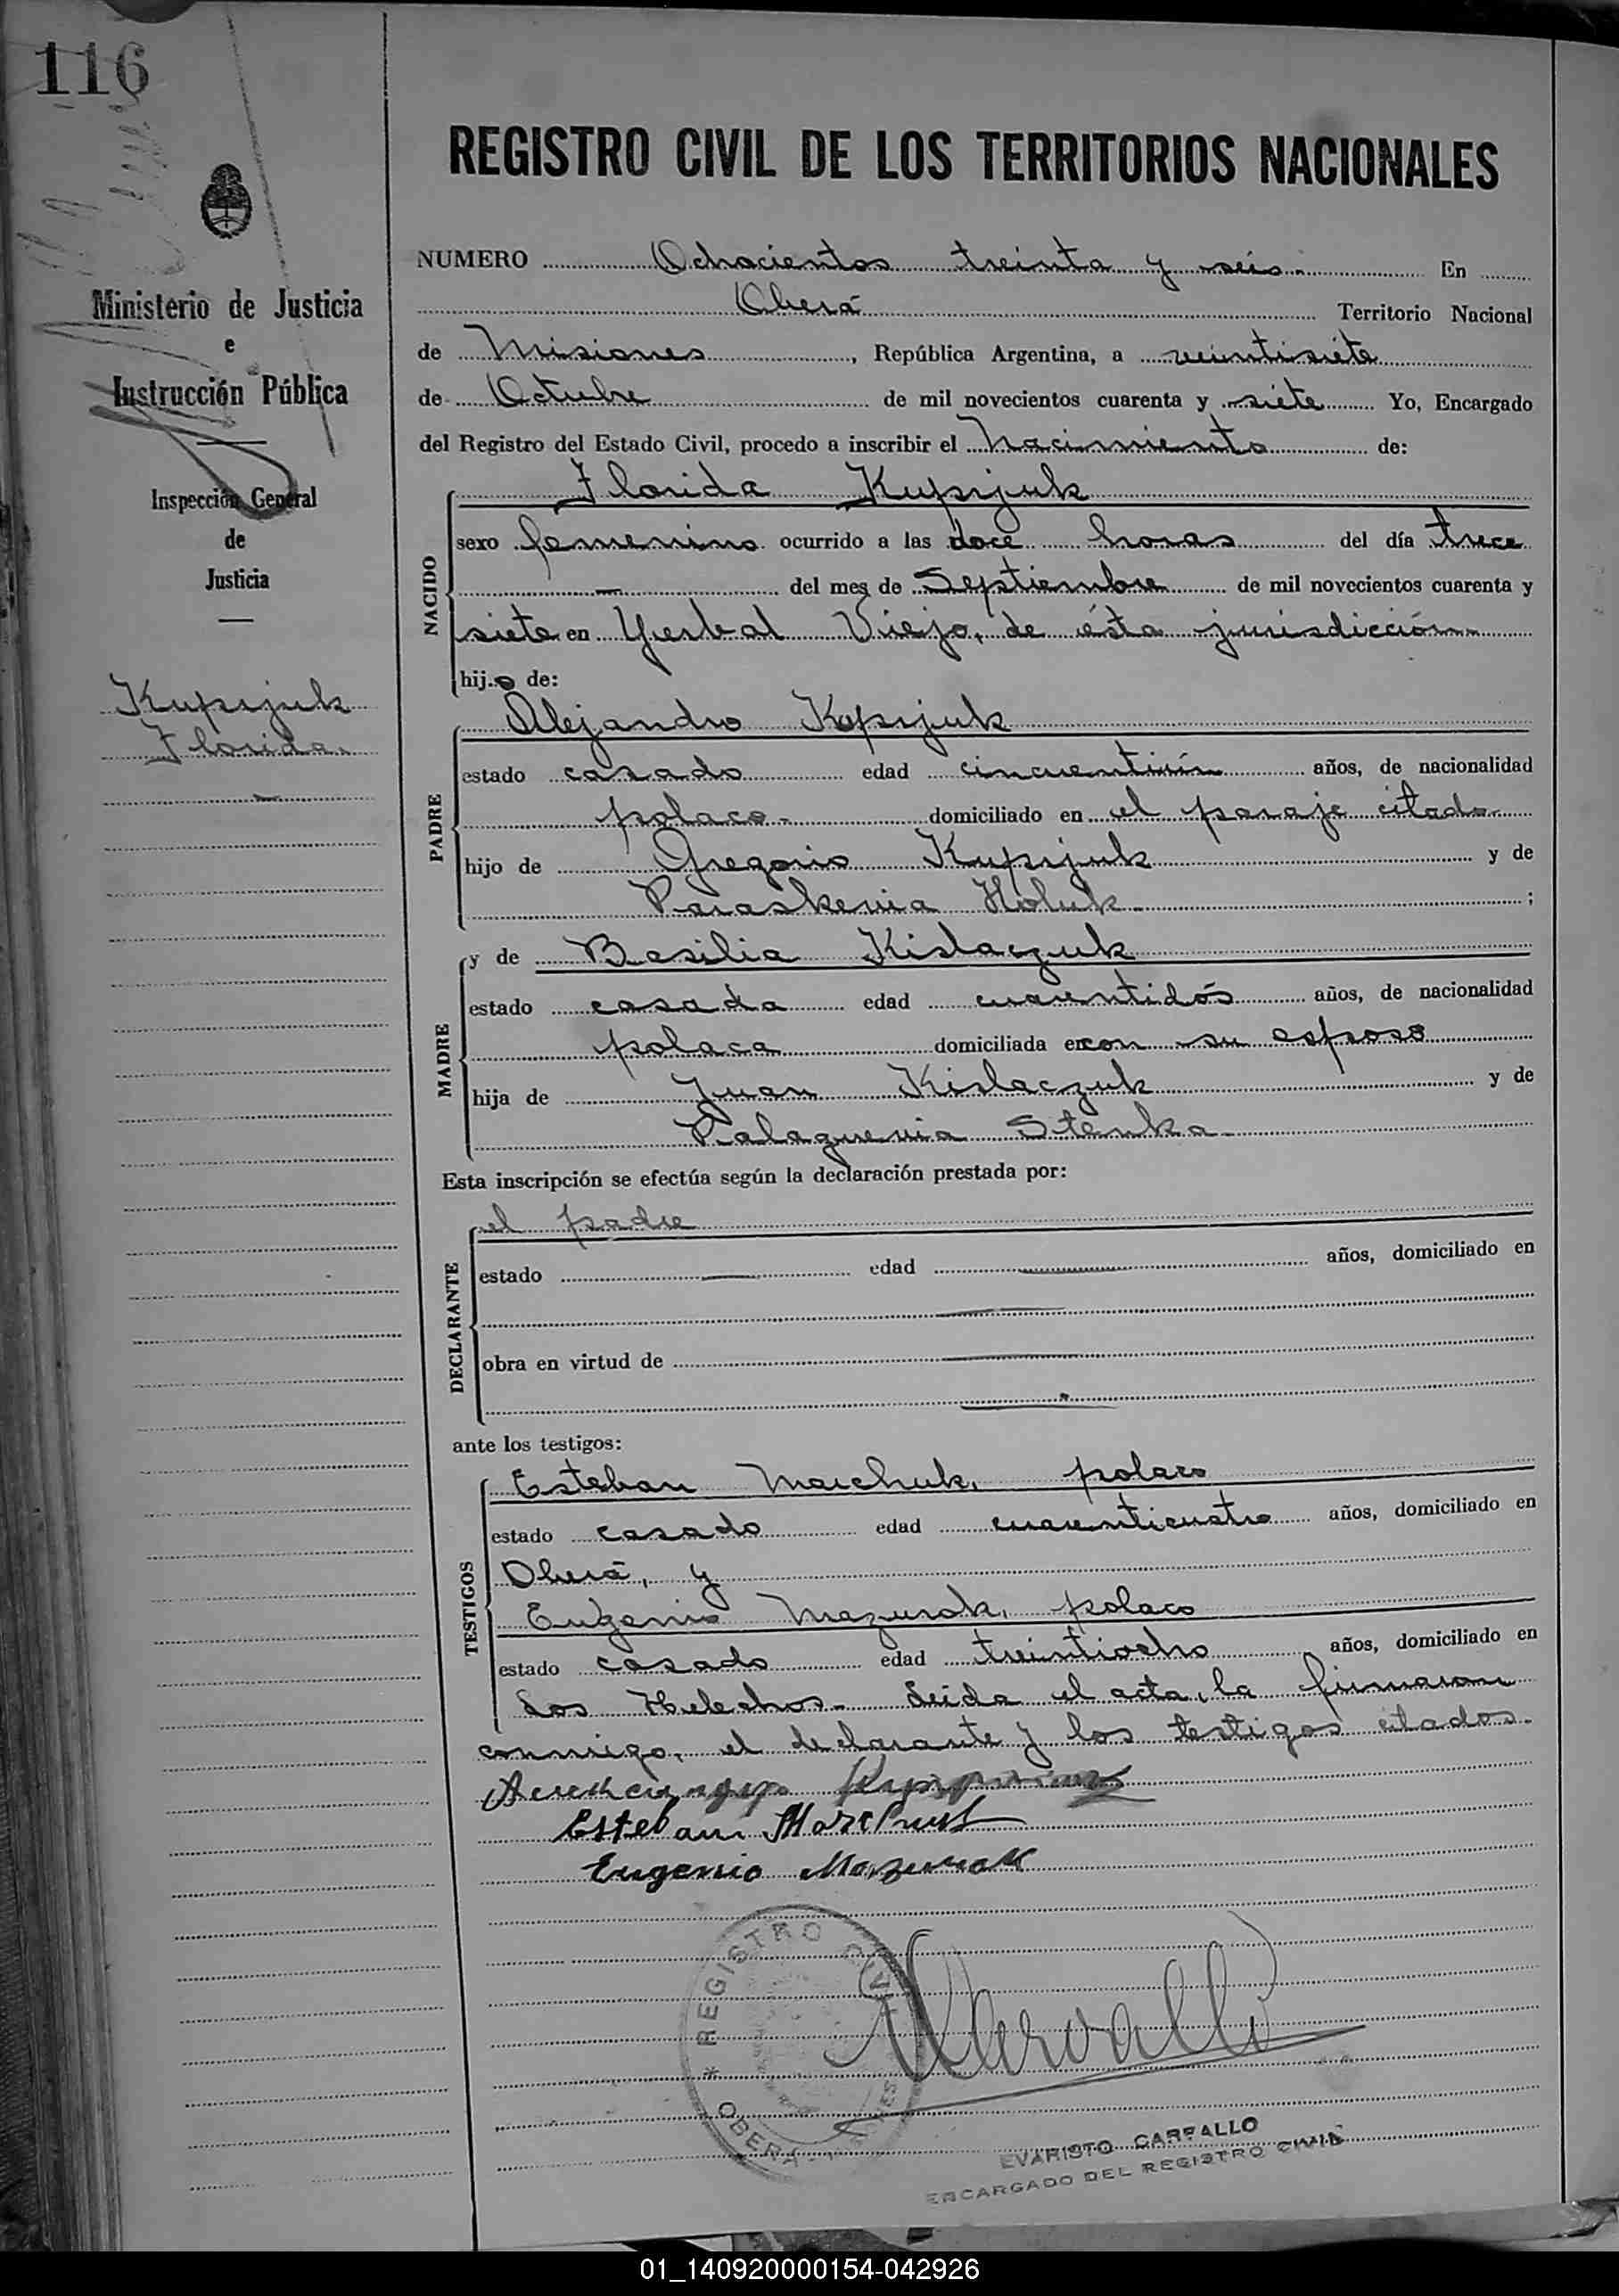 116
REGISTRO CIVIL DE LOS TERRITORIOS NACIONALES
Ministerio de Justicia
e
Instrucción Pública
Inspección General
de
Justicia
Kuprijuk
Florida
NUMERO Ochocientos treinta y seis.- En
Oberá Territorio Nacional
de Misiones, República Argentina, a veintisiete
de Octubre de mil novecientos cuarenta y siete Yo, Encargado
del Registro del Estado Civil, procedo a inscribir el Nacimiento de:
NACIDO
Florida Kuprijuk
sexo femenino ocurrido a las doce horas del día trece
— del mes de Septiembre de mil novecientos cuarenta y
siete en Yerbal Viejo, de ésta jurisdicción
hija de:
PADRE
Alejandro Kuprijuk
estado casado edad cincuentiún años, de nacionalidad
polaco.- domiciliado en el paraje citado
hijo de Gregorio Kuprijuk y de
Paraskevia Holuk ;
MADRE
y de Basilia Kislaczuk
estado casada edad cuarentidós años, de nacionalidad
polaca domiciliada en con su esposo
hija de Juan Kislaczuk y de
Palaguevia Stenka
Esta inscripción se efectúa según la declaración prestada por:
DECLARANTE
el padre
estado — edad — años, domiciliado en
obra en virtud de —
ante los testigos:
TESTIGOS
Esteban Marchuk, polaco
estado casado edad cuarenticuatro años, domiciliado en
Oberá, y
Eugenio Mazurok, polaco
estado casado edad treintiocho años, domiciliado en
Los Helechos.- Leida el acta, la firmaron
conmigo, el declarante y los testigos citados.
Esteban Marchuk
Eugenio Mazurok
REGISTRO CIVIL
* OBERÁ
EVARISTO CARVALLO
ENCARGADO DEL REGISTRO CIVIL
01_140920000154-042926